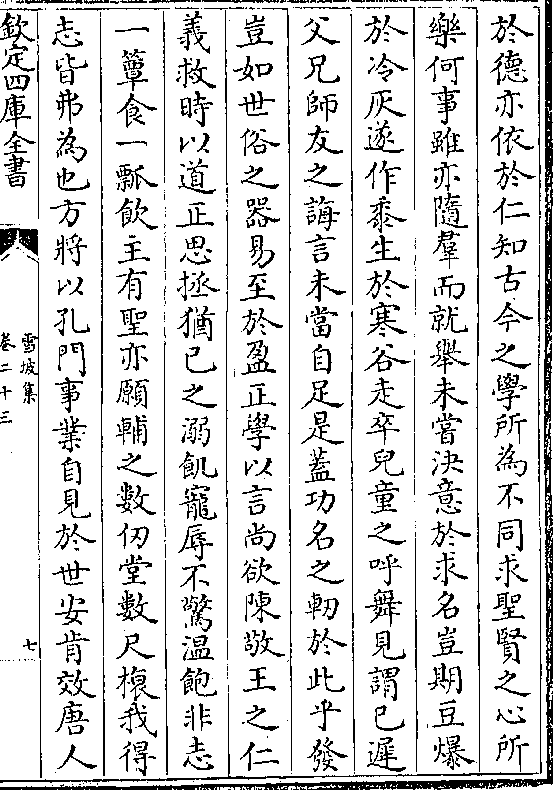 於德亦依於仁知古今之學所為不同求聖賢之心所
樂何事雖亦隨羣而就舉未嘗決意於求名豈期豆爆
於冷灰遂作黍生於寒谷走卒兒童之呼舞見謂已遲
父兄師友之誨言未當自足是葢功名之軔於此乎發
豈如世俗之器易至於盈正學以言尚欲陳敬王之仁
義救時以道正思拯猶已之溺飢寵辱不驚溫飽非志
一簞食一瓢飲主有聖亦願輔之數仞堂數尺榱我得
志皆弗為也方將以孔門事業自見於世安肯效唐人
欽定四庫全書
雪坡集
卷二十三
七